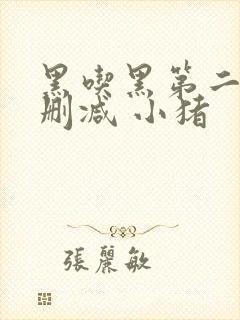 黑喫黑第二
刪减 小猪
張麗敏